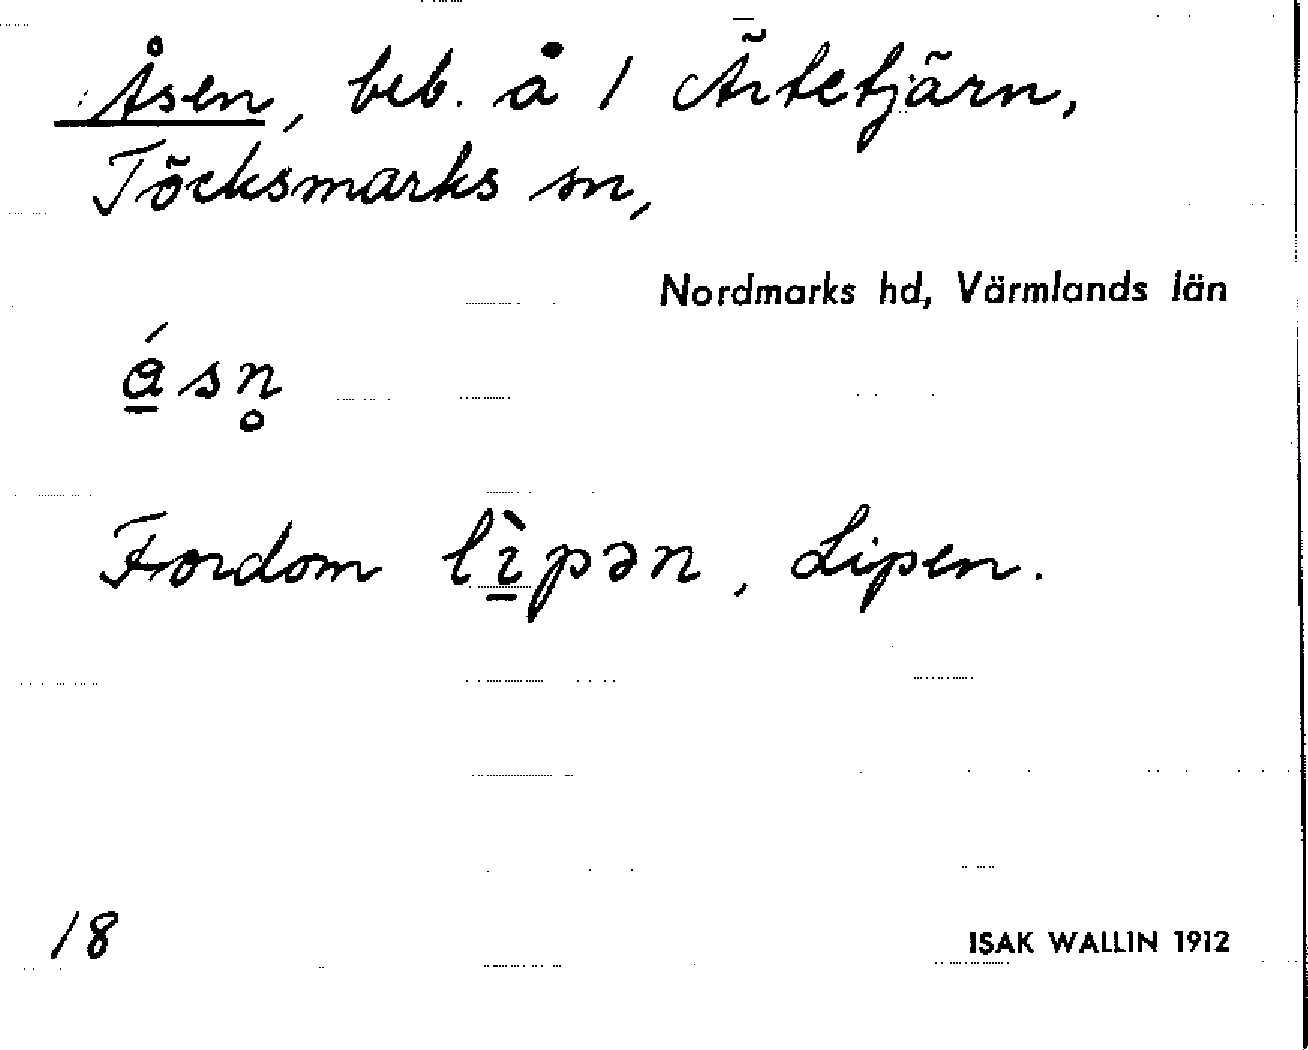 Åsen, beb. å 1 Ärtetjärn,
Töcksmarks sn,
Nordmarks hd, Värmlands län
á̱sn̥
Fordom lì̱pən, Lipen.
18
ISAK WALLIN 1912